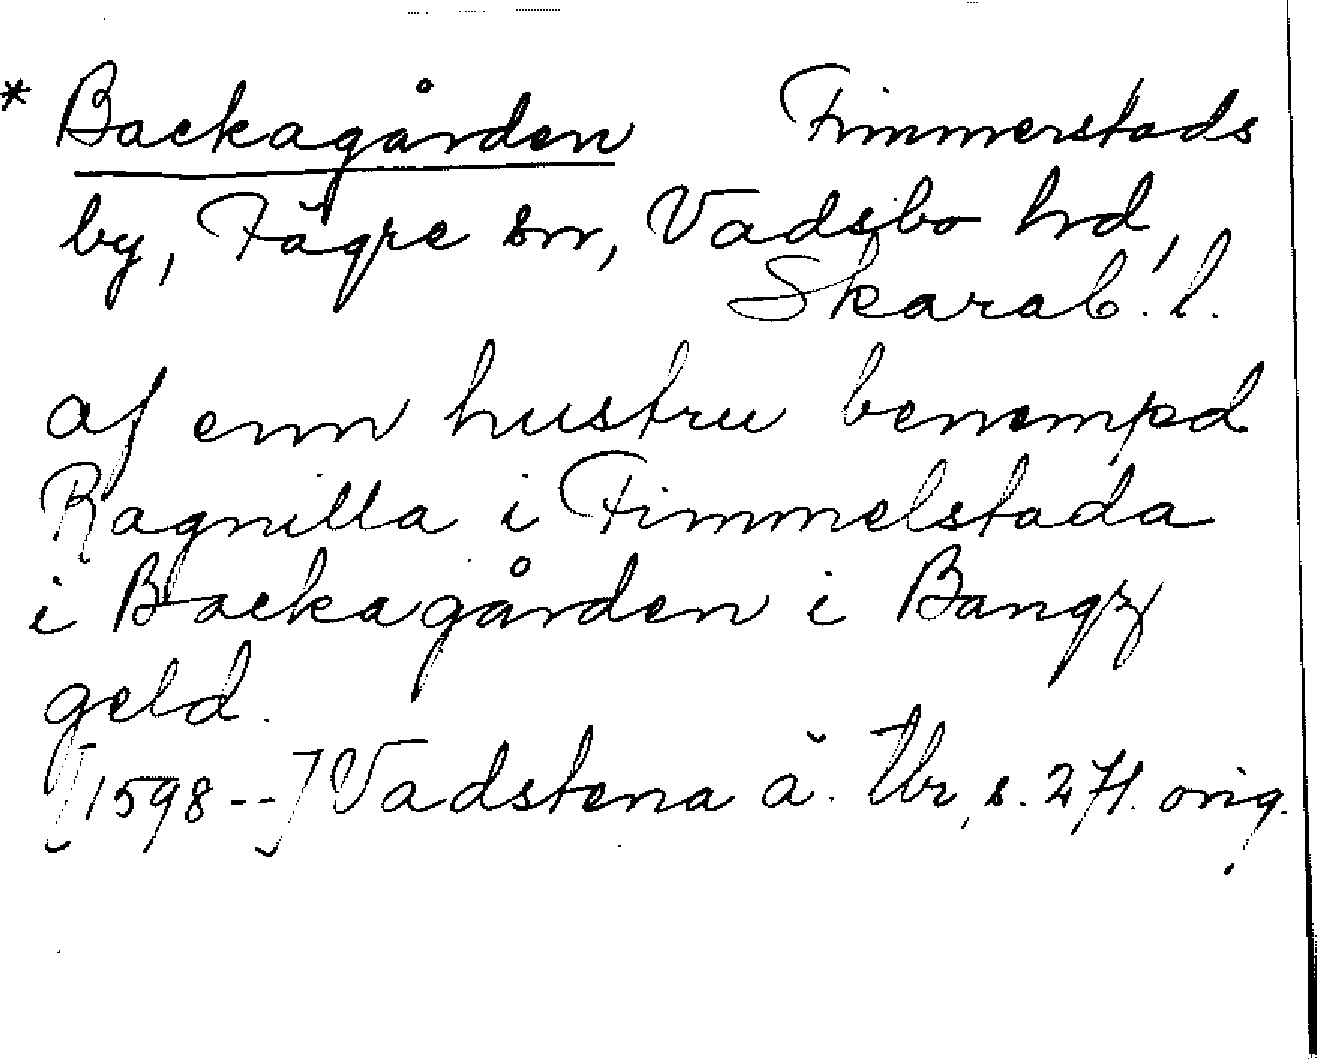 * Backagården Fimmerstads
by, Fägre sn, Vadsbo hd,
Skarab. l.
af enn hustru benempd
Ragnilla i Fimmelstada
i Backagården i Bangz
geld.
[1598--] Vadstena ä. Ubr, s. 271. orig.